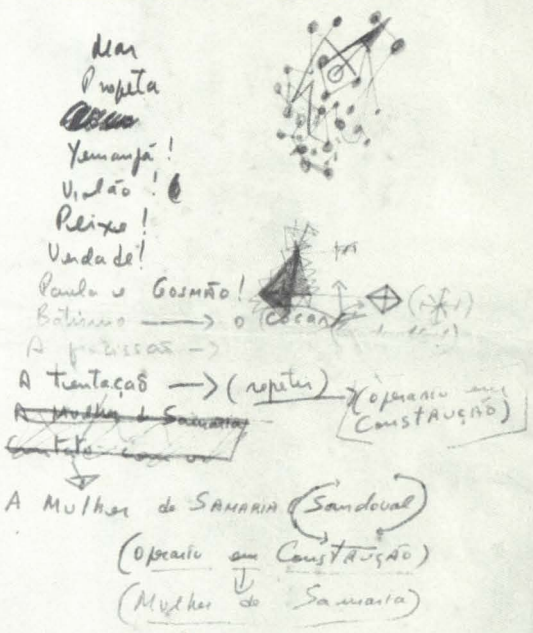 Mar
Propeta
Yemanjá!
Violão!
Peixe!
Verdade!
Paula e GOSMÃO!
Batismo → o (COCAR)
A →
A tentação → (repete) → (operario em
CONSTRUÇÃO)
A Mulher de Samaria
A Mulher de SAMARIA (Sandoval)
(Operario em CONSTRUÇÃO)
(Mulher de Samaria)